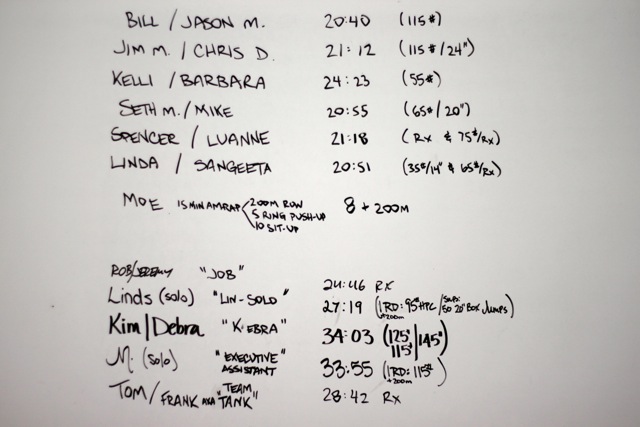 BILL / JASON M. 20:40 (115#)
JIM M. / CHRIS D. 21:12 (115#/24")
KELLI / BARBARA 24:23 (55#)
SETH M. / MIKE 20:55 (65#/20")
SPENCER / LUANNE 21:18 (RX & 75#/RX)
LINDA / SANGEETA 20:51 (35#/14" & 65#/RX)
MOE 15 MIN AMRAP 200M ROW 8 + 200M
5 RING PUSH-UP
10 SIT-UP
ROB/JEREMY "JOB" 24:46 RX
Linds (solo) "LIN-SOLO" 27:19 (1RD: 95# HPC / SUBS: 50 20" BOX JUMPS)
+200m
Kim|Debra "KEBRA" 34:03 (125# 115#|145#)
M. (solo) "EXECUTIVE ASSISTANT" 33:55 (1RD: 115#)
+200m
TOM/FRANK AKA "TEAM TANK" 28:42 RX